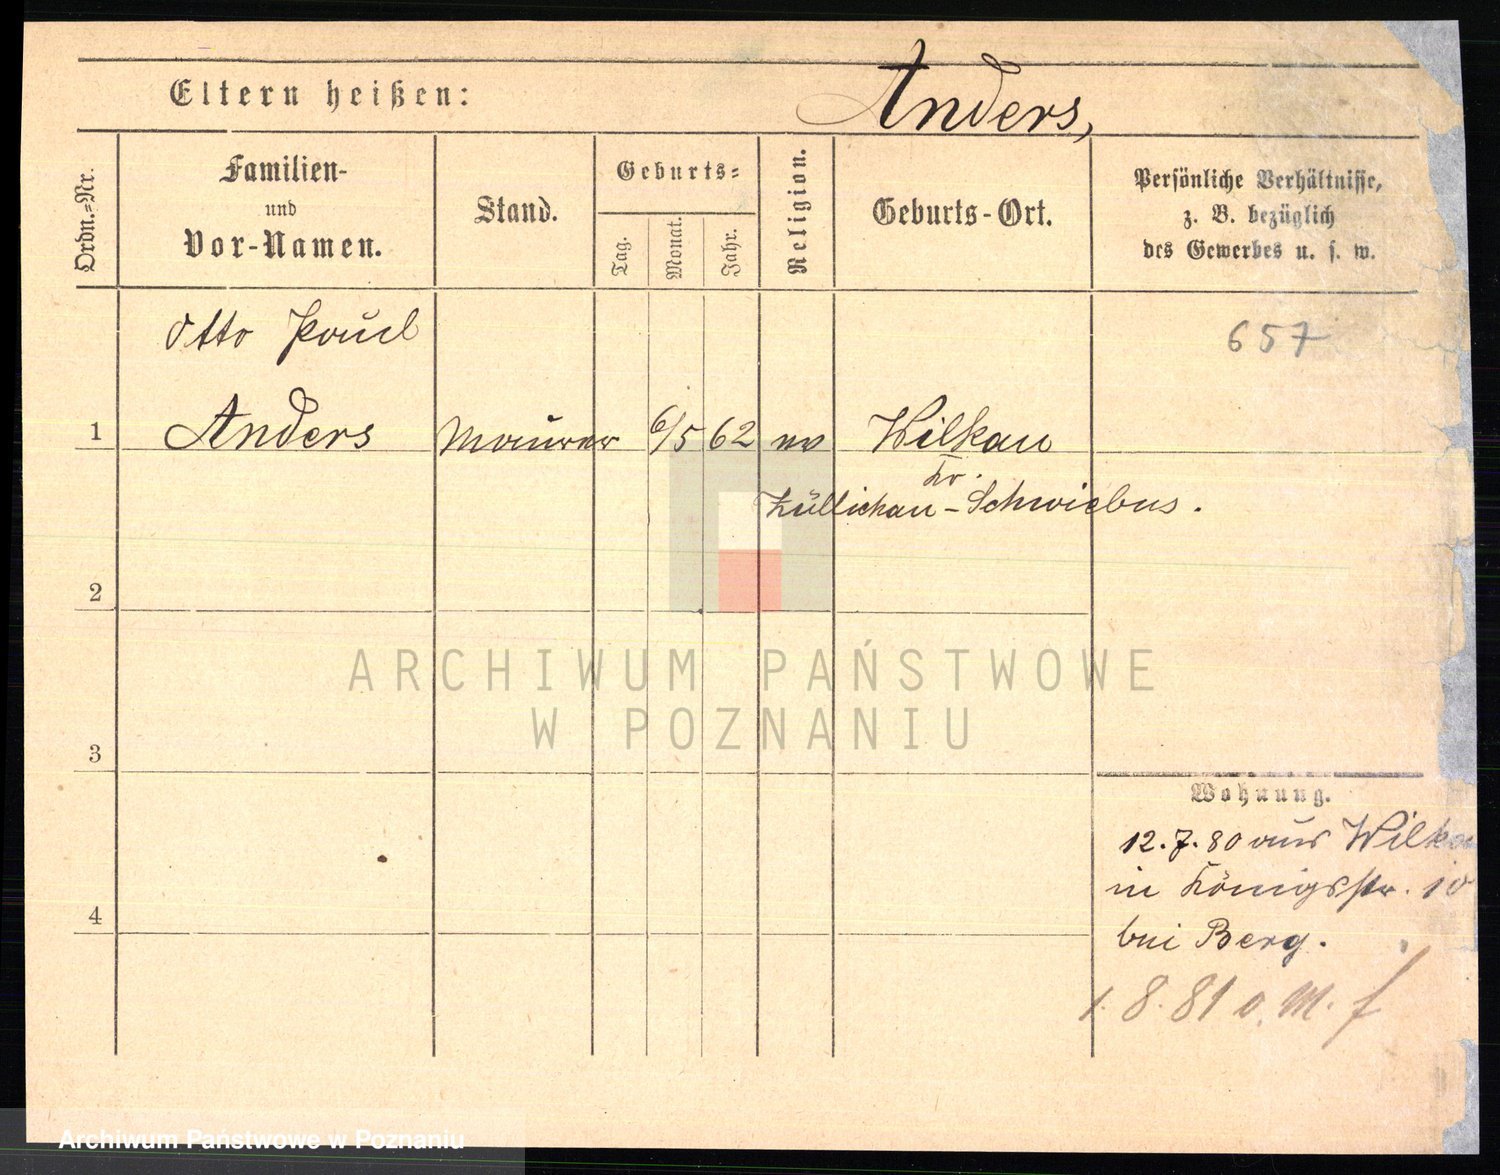 Eltern heißen:
Anders,
Ordn.=Nr.
Familien-
und
Vor-Namen.
Stand.
Geburts=
Tag.
Monat.
Jahr.
Religion.
Geburts-Ort.
Persönliche Verhältnisse,
z. B. bezüglich
des Gewerbes u. s. w.
Otto Paul
657
1
Anders
Maurer
6/5 62
ev
Wilkau
Kr.
Züllichau-Schwiebus.
2
ARCHIWUM PAŃSTWOWE
W POZNANIU
3
Wohnung.
12.7.80 aus Wilkau
in Königsstr. 10
bei Berg.
4
1.8.81 o. M. f
Archiwum Państwowe w Poznaniu